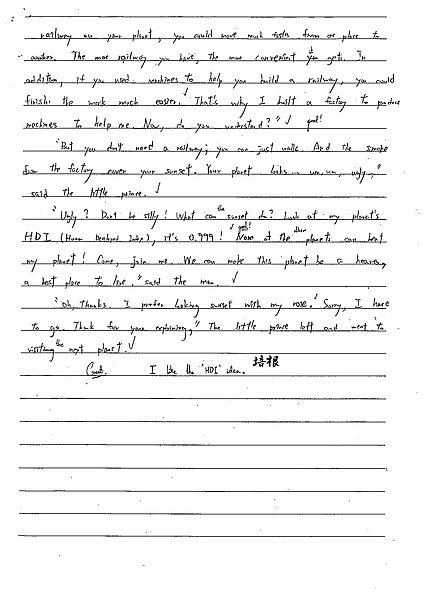 railway on your planet, you could move much faster from one place to
another. The more railway you have, the more convenient you gets. In
addition, if you used machines to help you build a railway, you could
finish the work much easier. That's why I built a factory to produce
machines to help me. Now, do you understand?" good!
"But you don't need a railway; you can just walk. And the smoke
from the factory cover your sunset. Your planet looks... um, um, ugly,"
said the little prince.
"Ugly? Don't be silly! What can the sunset do? Look at my planet's
HDI (Human Developed Index), it's 0.999! good! None of the other planets can beat
my planet! Come, join me. We can make this planet be a heaven,
a best place to live." said the man.
"Oh, thanks. I prefer looking sunset with my rose. Sorry, I have
to go. Thank for your explaining," The little prince left and went to
visiting the next planet.
Good. I like the "HDI" idea. 培根